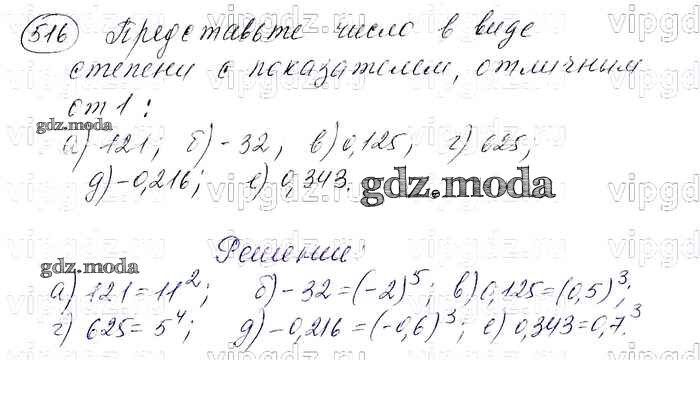 516 Представьте число в виде
степени с показателем, отличным
от 1:
gdz.moda
а) 121; б) -32, в) 0,125; г) 625;
д) -0,216; е) 0,343. gdz.moda
Решение:
gdz.moda
а) 121 = 11²; б) -32 = (-2)⁵; в) 0,125 = (0,5)³;
г) 625 = 5⁴; д) -0,216 = (-0,6)³; е) 0,343 = 0,7³.